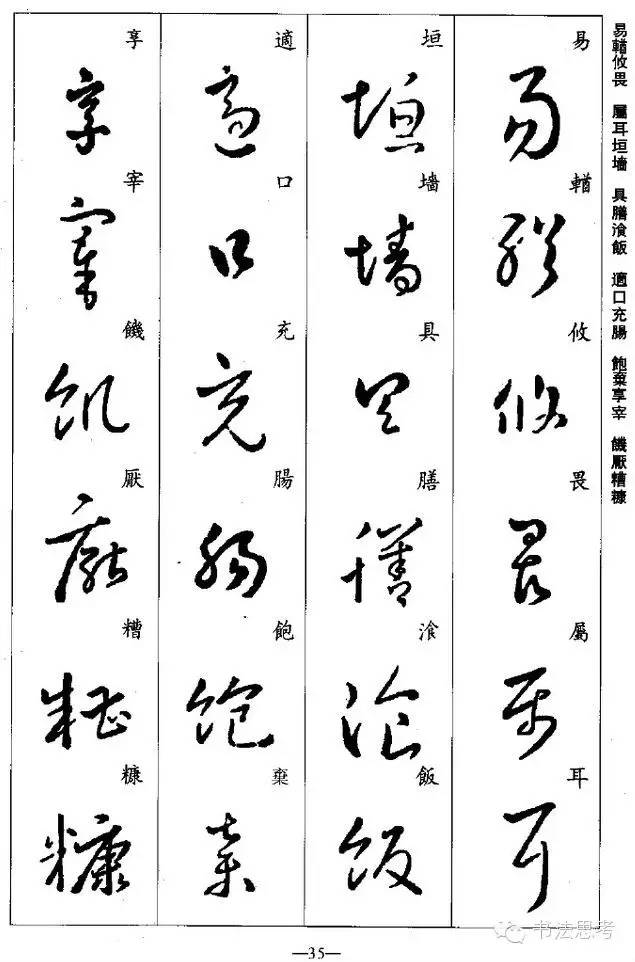 易輶攸畏 屬耳垣墻 具膳湌飯 適口充腸 飽棄享宰 饑厭糟糠
易輶攸畏屬耳
垣墻具膳湌飯
適口充腸飽棄
享宰饑厭糟糠
—35—
书法思考